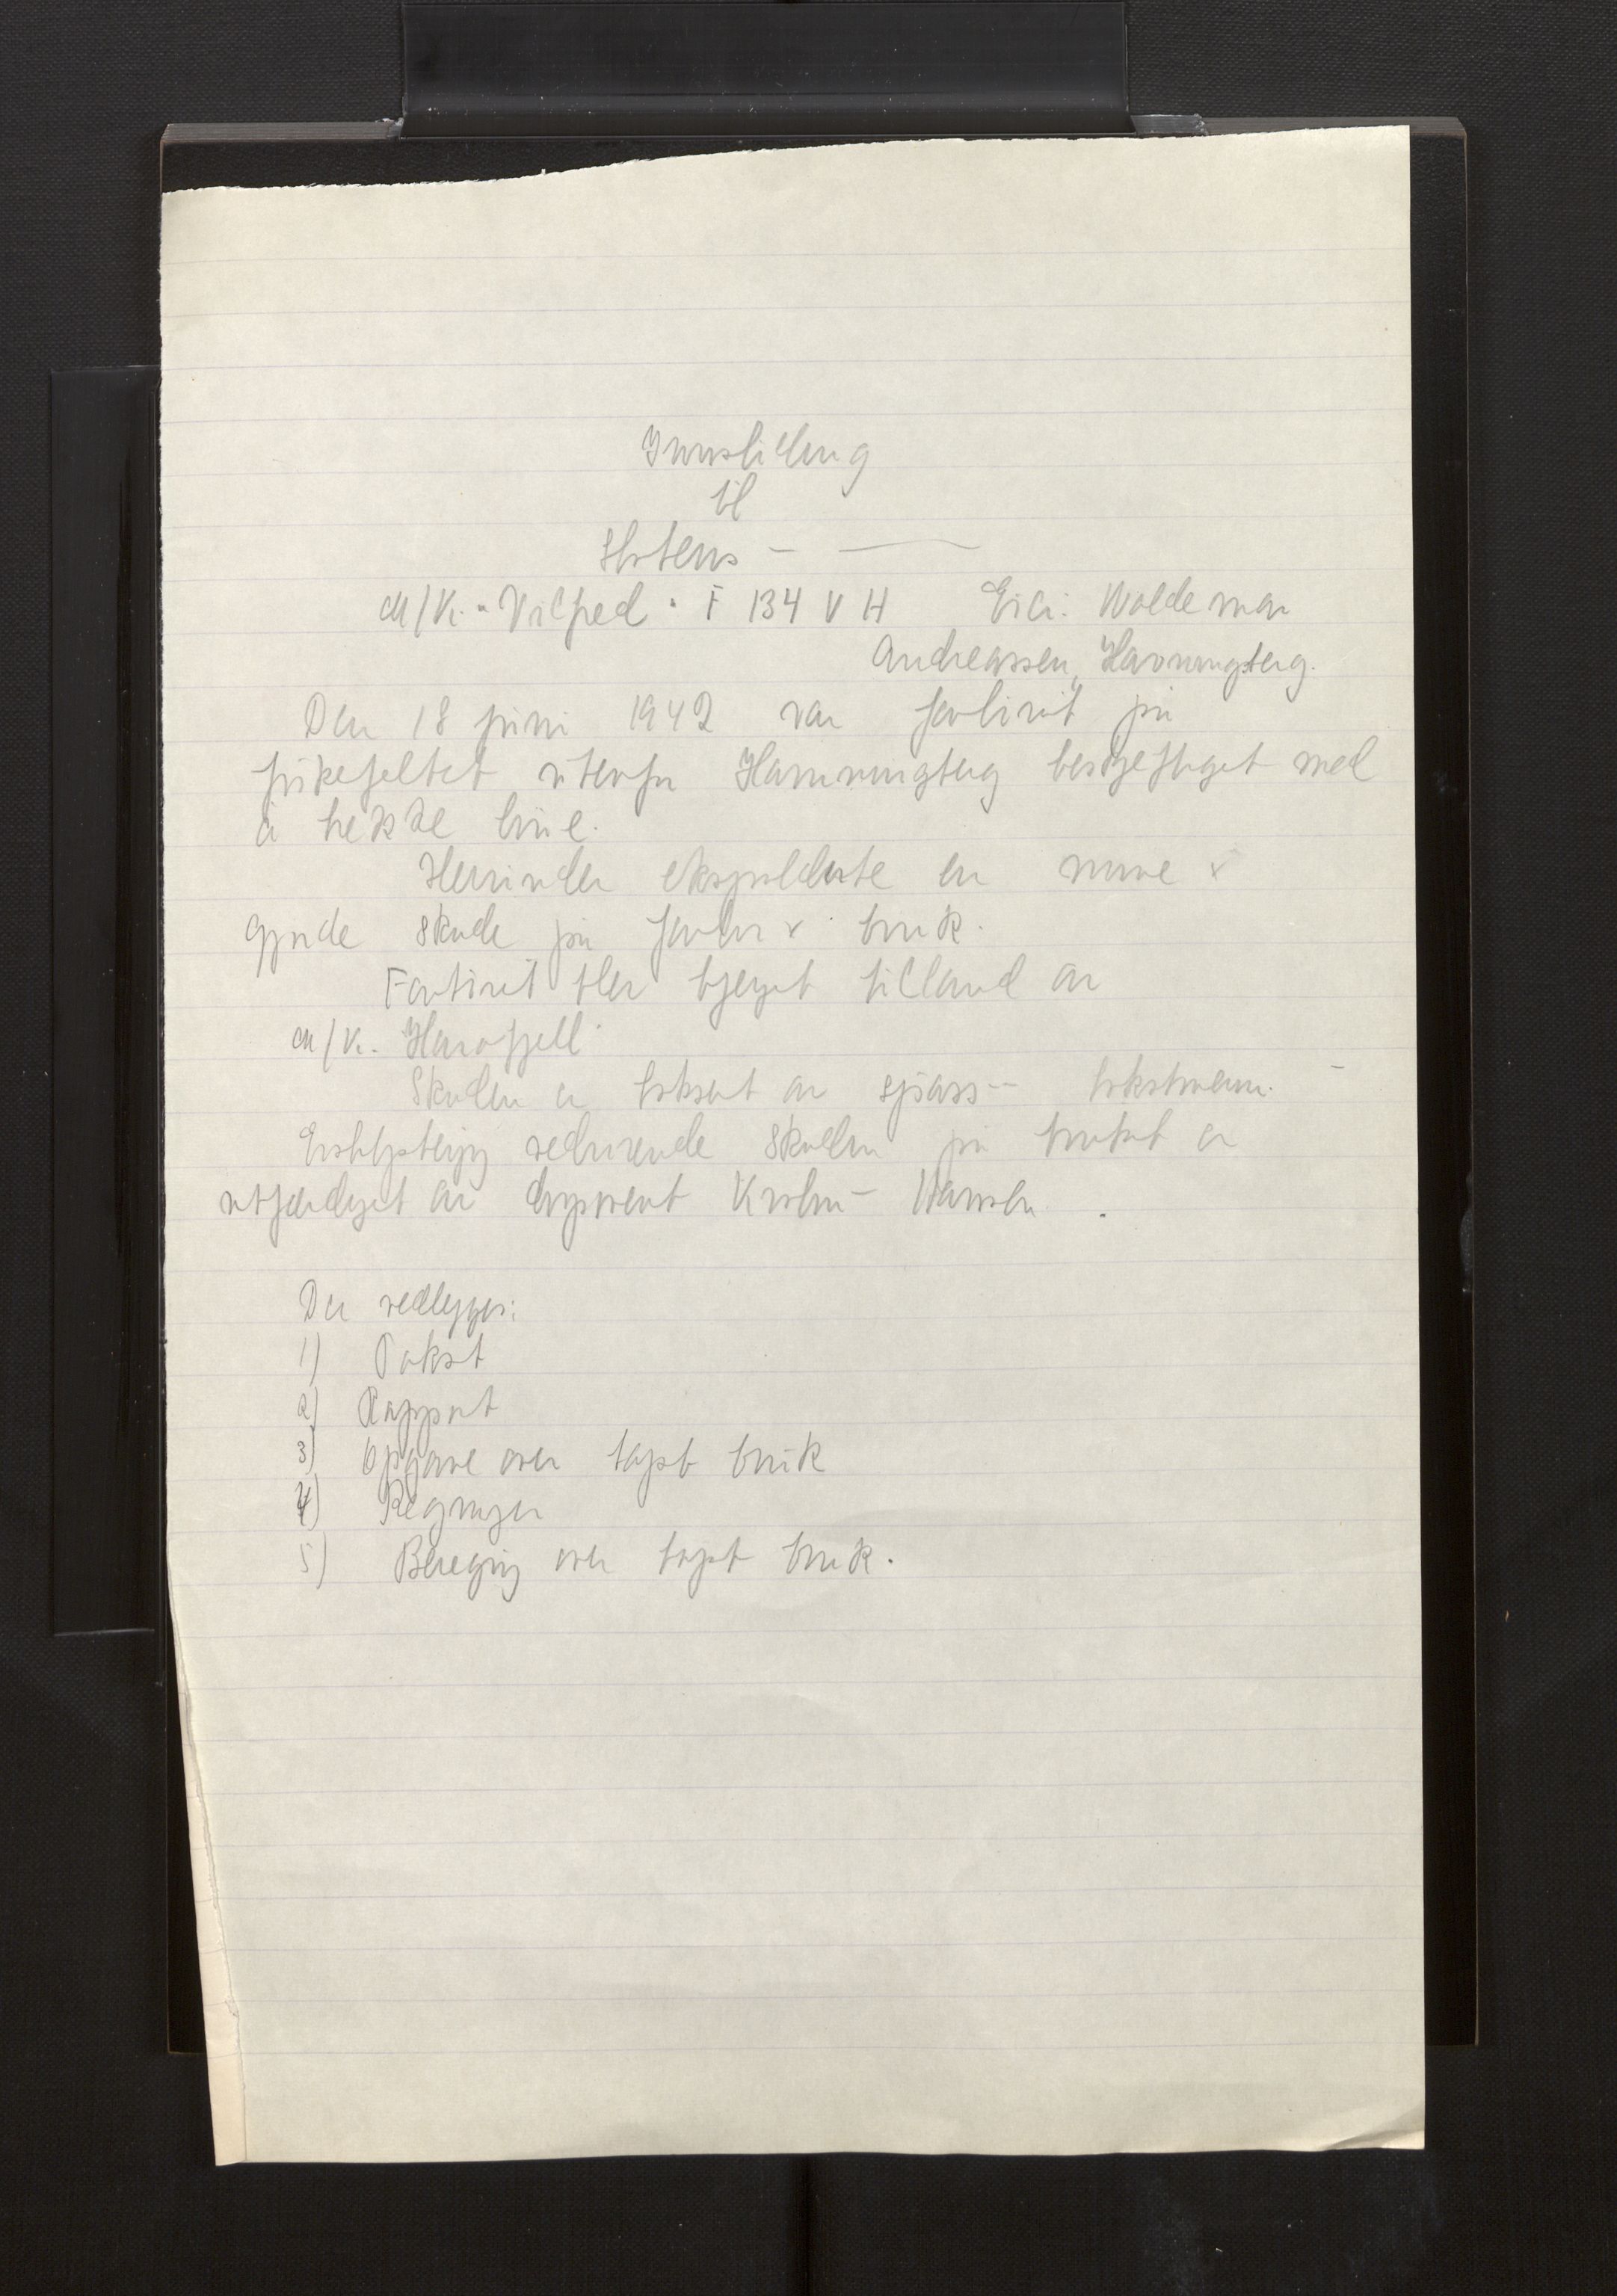 Innstilling
til
Statens -
M/K. "Vilfred" F 134 V H Eier: Woldemar
Andreassen, Havningberg.
Den 18 juni 1942 var fartöiet på
fiskefeltet utenfor Havningberg beskjeftiget med
å trekke line.
Herunder eksploderte en mine &
gjorde skade på fartöi & bruk.
Fartöiet blev bjerget til land av
M/K. Havofjell
Skaden er taksert av sjöass- takstmenn.
Erstatning vedrörende skaden på bruket er
utferdiget av disponent Krohn-Hansen.
Der vedlegges:
1) Takst
2) Rapport
3) Opgave over tapt bruk
4) Regninger
5) Beregning over tapt bruk.